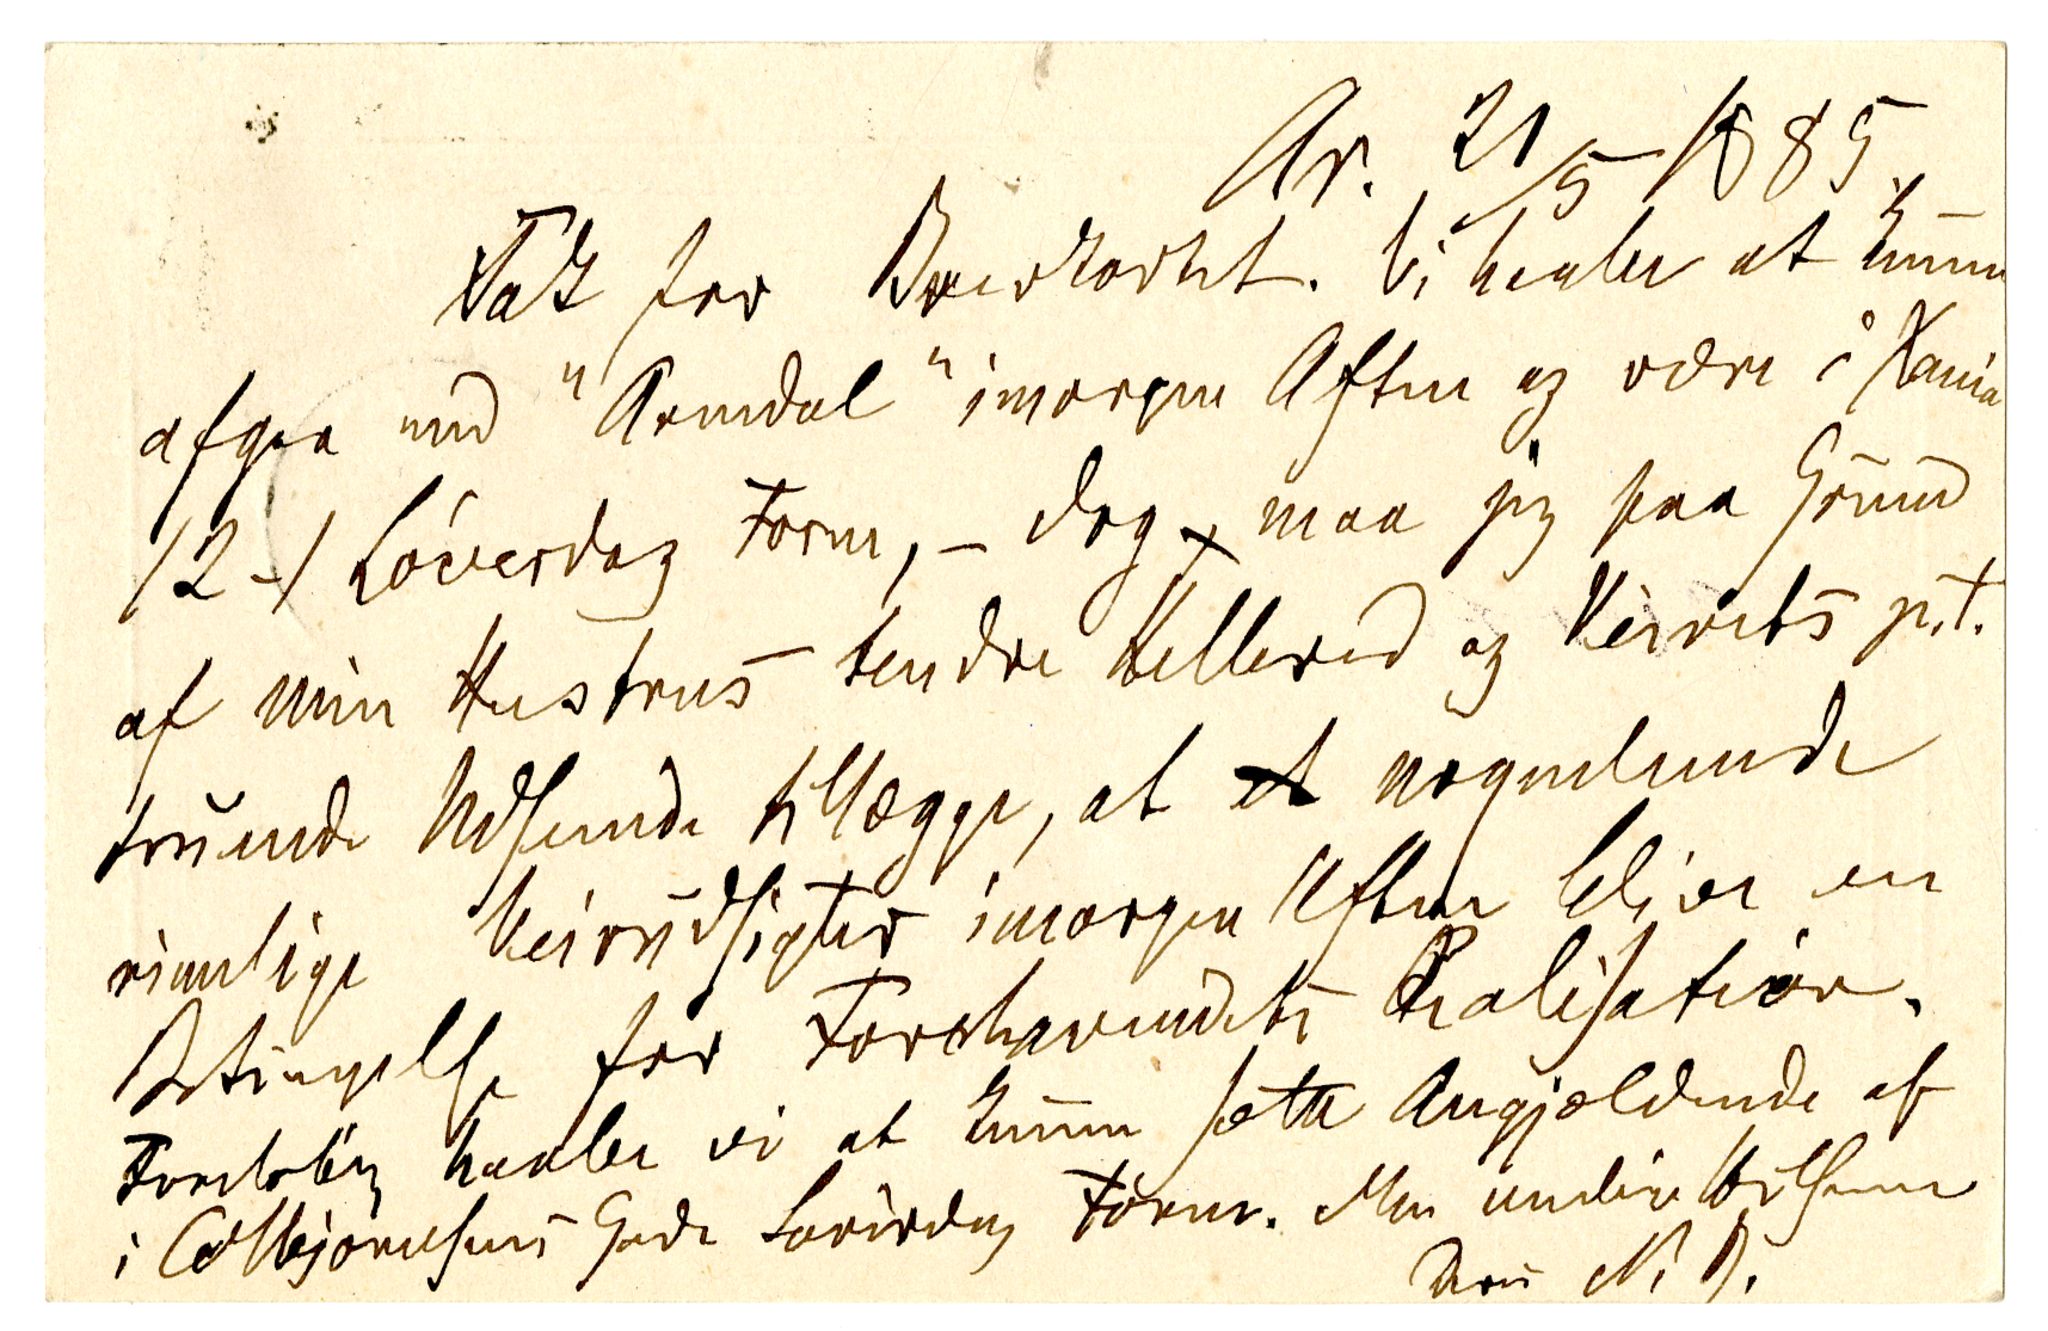 Ar. 21/5 1885.
Tak for Brevkortet. Vi haaber at kunne
afgaa med "Arendal" imorgen Aften og være i Xania
12-1 Löverdag Form, - dog, maa jeg paa Grund
af min Hustrus Ildebefind og Veirets p.t.
truende Udseende tillægge, at nogenlunde
rimlige Veirudsigter imorgen Aften bliver en
Betingelse for Forehavendets Realisation.
Forelöbig haaber vi at kunne sætte Angjældende af
i Asbjörnsens Gade Löverdag Form. Med venlig Hilsen
Din N. B.